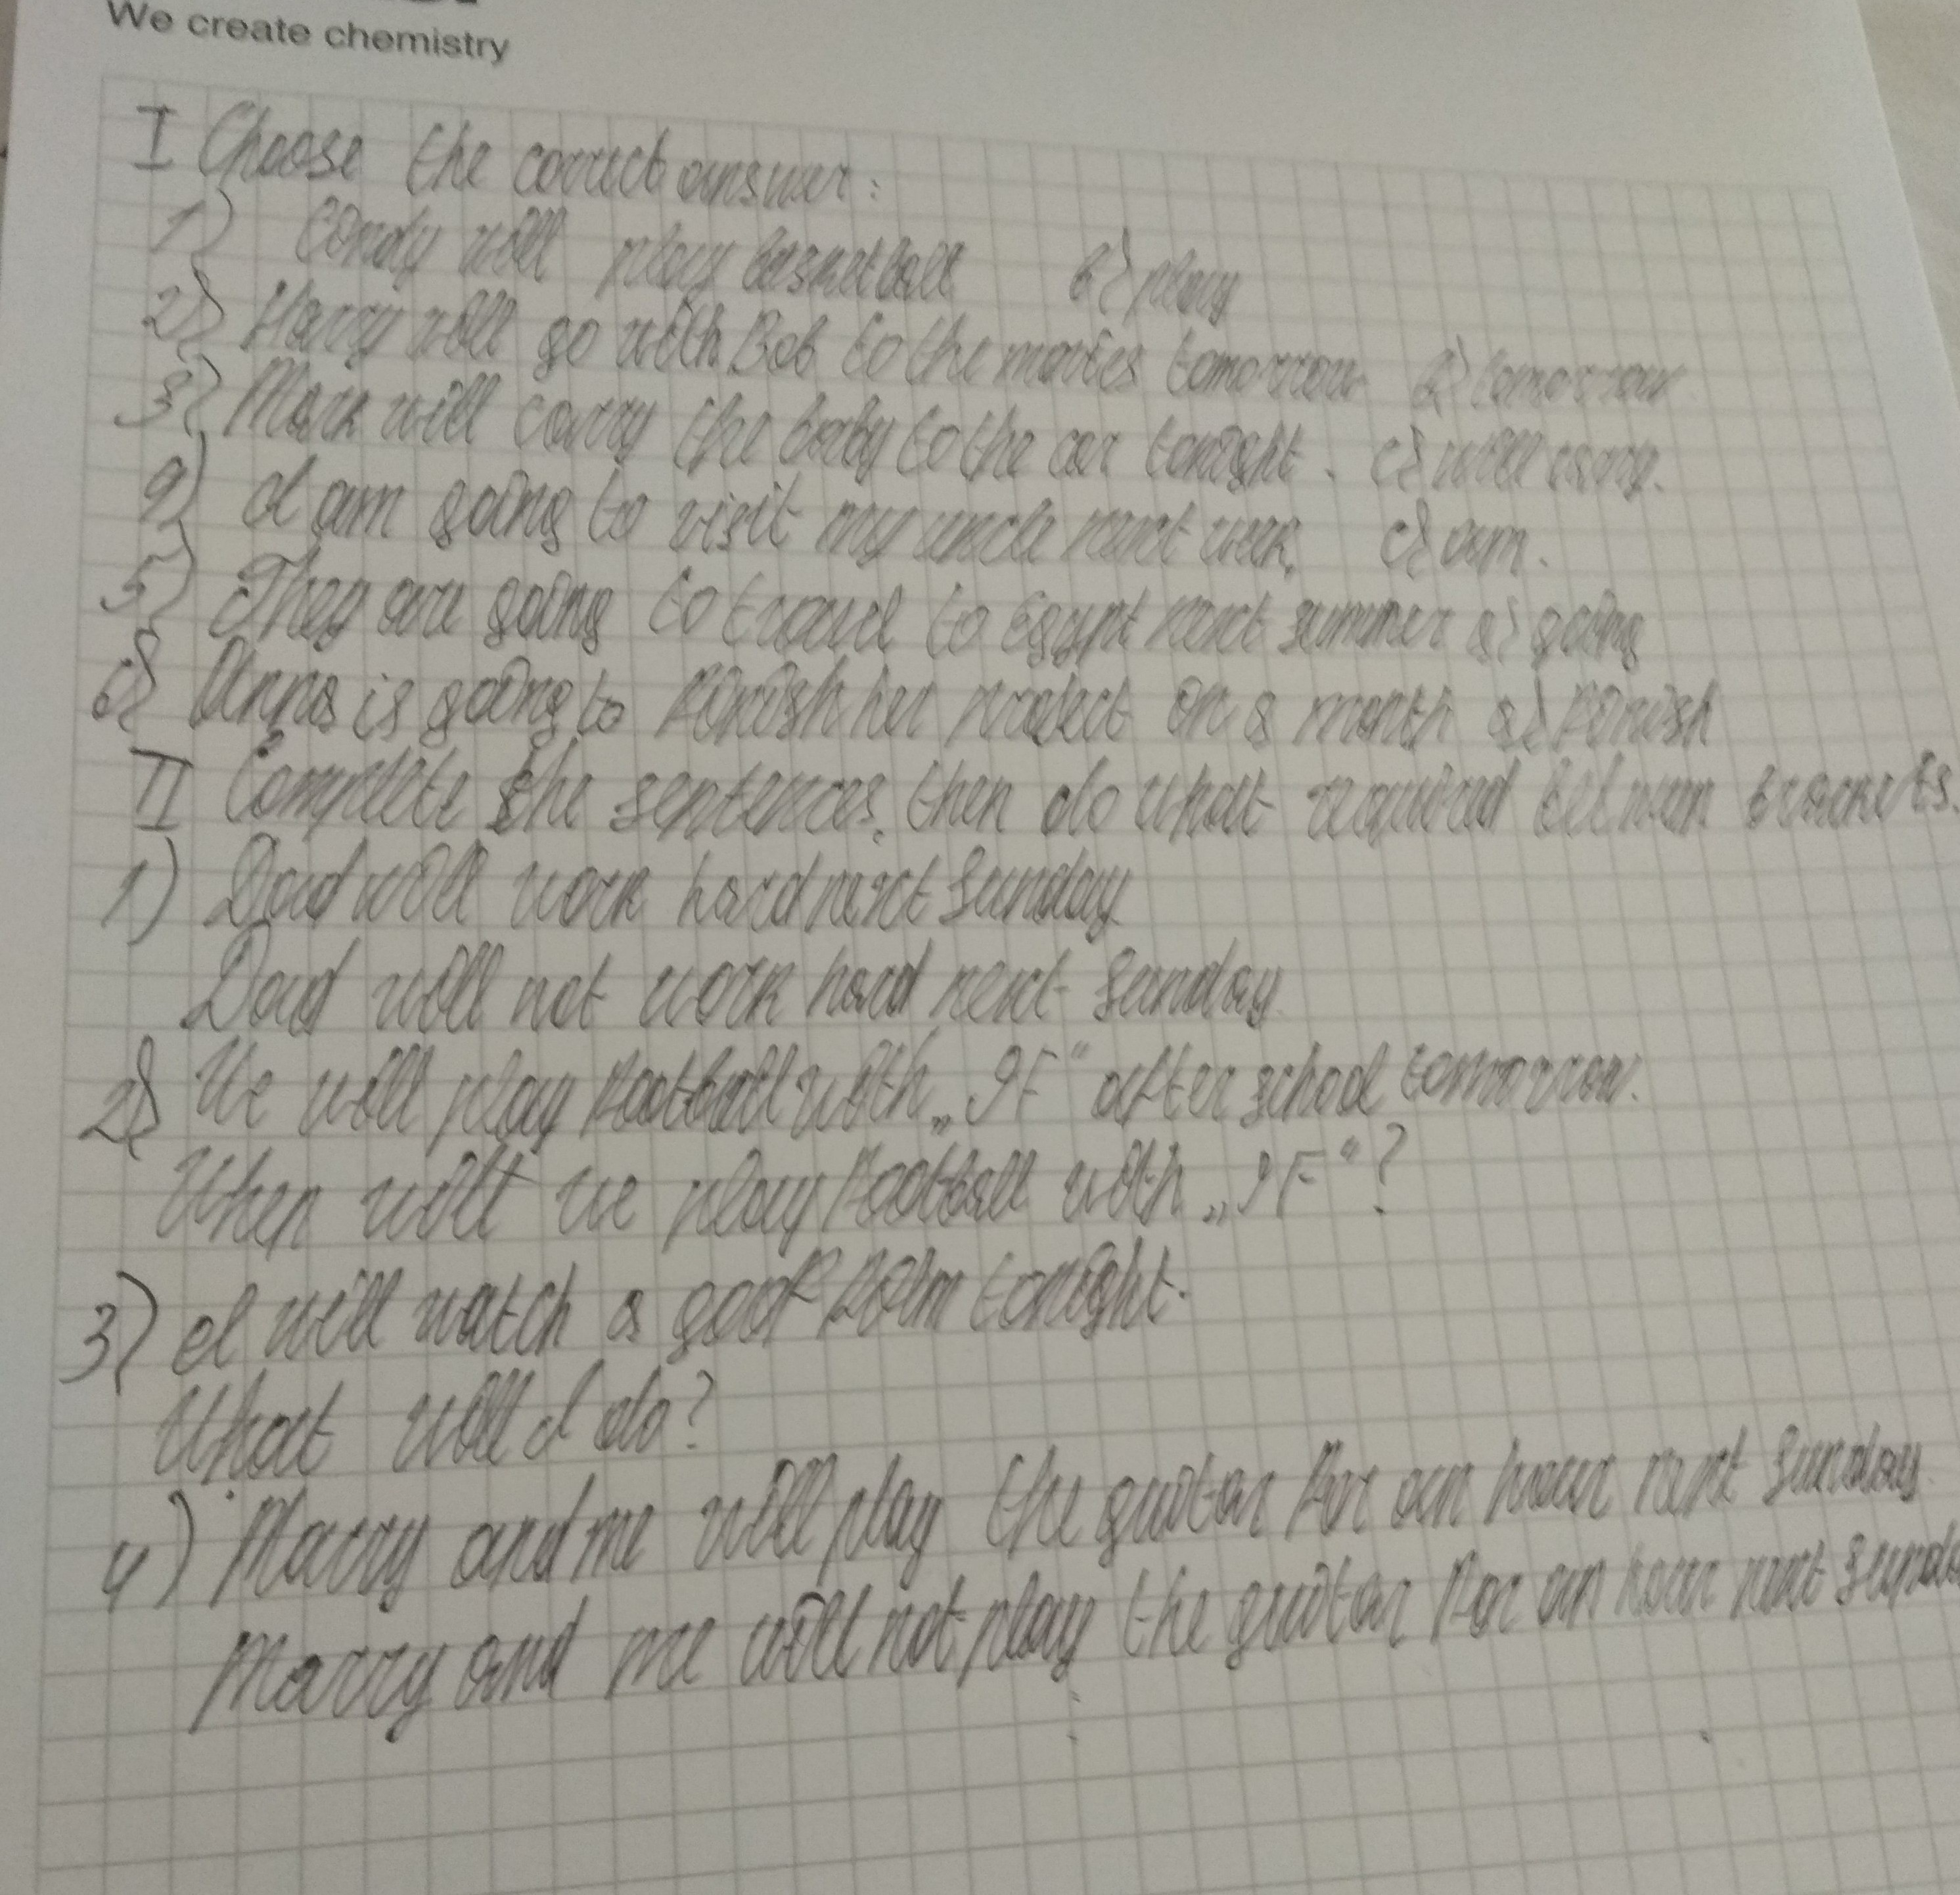 We create chemistry
I Choose the correct answer:
1) Condy will play basketball b) play
2) Harry will go with Bob to the movies tomorrow tomorrow
3) Mark will carry the baby to the car tonight. c) will carry.
4) I am going to visit my uncle next week. c) am.
5) They are going to travel to Egypt next summer a) going
6) Anna is going to finish her project on a month a) finish
II Complete the sentences, then do what required between brackets.
1) Dad will work hard next Sunday
Dad will not work hard next Sunday.
2) We will play football with „9E“ after school tomorrow.
When will we play football with „9E“?
3) I will watch a good film tonight.
What will I do?
4) Marry and me will play the guitar for an hour next Sunday.
Marry and me will not play the guitar for an hour next Sunda